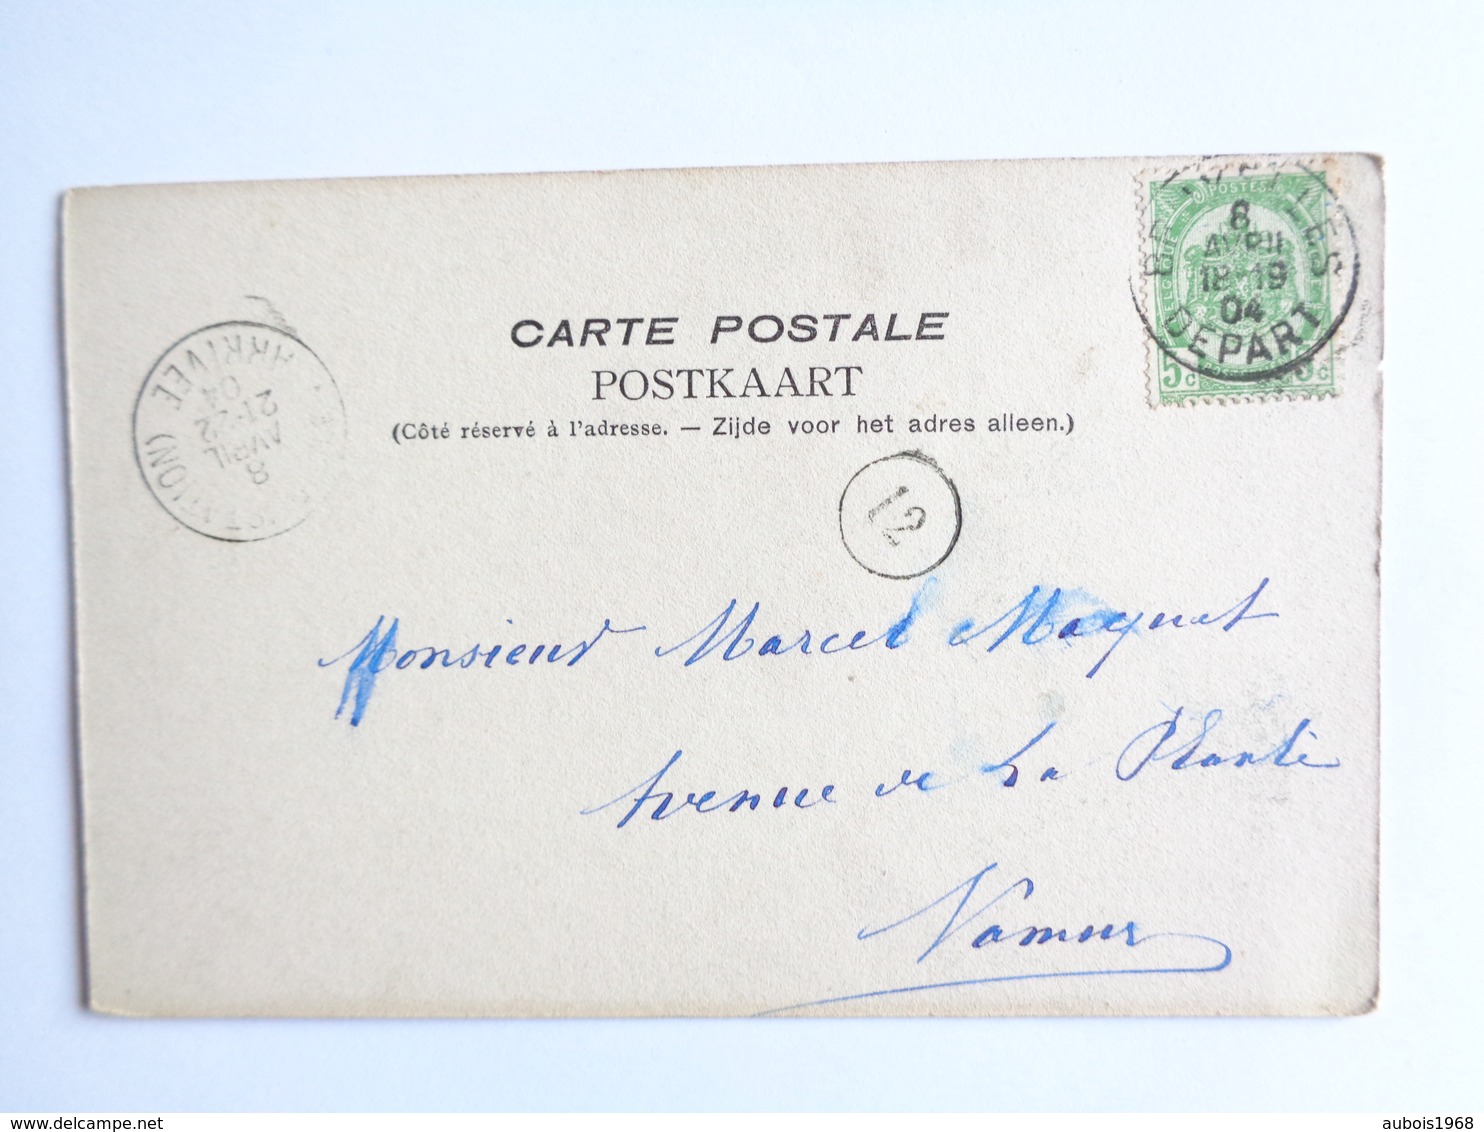 CARTE POSTALE
POSTKAART
(Côté réservé à l'adresse. — Zijde voor het adres alleen.)
POSTES
5c 5c
8
AVRIL
18-19
04
DEPART
ARRIVEE
8
AVRIL
21-22
04
12
Monsieur Marcel Maquet
Avenue de La Plante
Namur
aubois1968